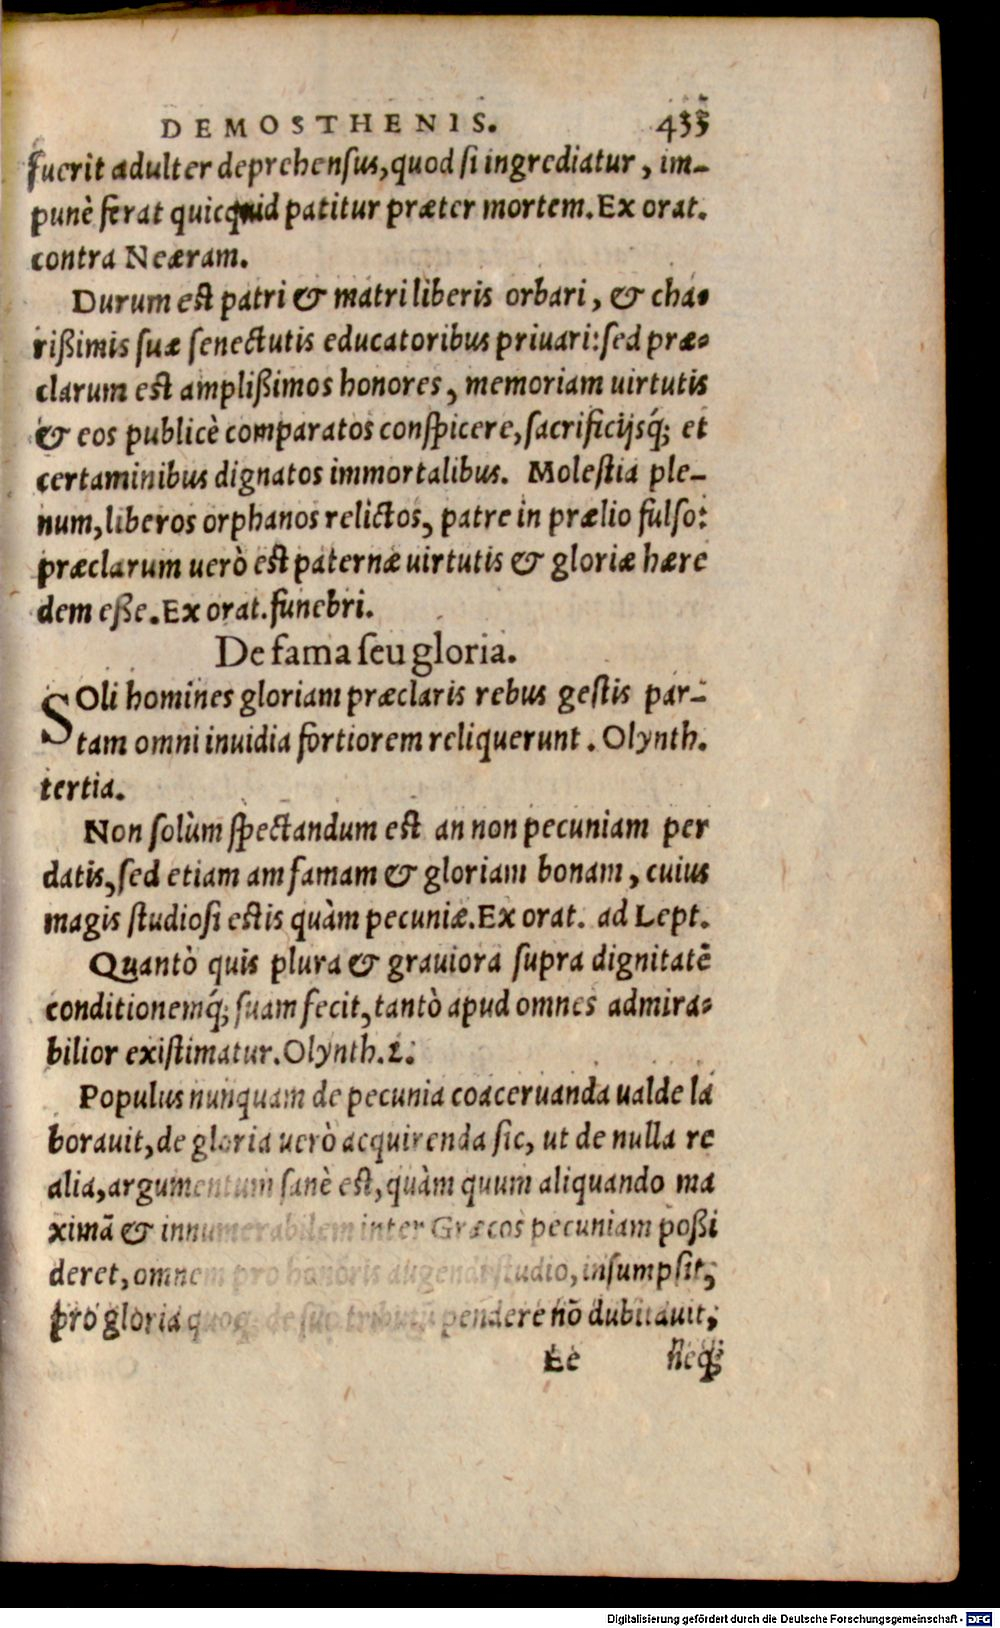 DEMOSTHENIS. 433
fuerit adulter deprehensus, quod si ingrediatur, im-
punè ferat quicquid patitur præter mortem. Ex orat.
contra Neæram.
Durum est patri & matri liberis orbari, & cha-
rißimis suæ senectutis educatoribus priuari: sed præ-
clarum est amplißimos honores, memoriam uirtutis
& eos publicè comparatos conspicere, sacrificijsq́; et
certaminibus dignatos immortalibus. Molestia ple-
num, liberos orphanos relictos, patre in prælio fulso:
præclarum uerò est paternæ uirtutis & gloriæ hære
dem eße. Ex orat. funebri.
De fama seu gloria.
SOli homines gloriam præclaris rebus gestis par-
tam omni inuidia fortiorem reliquerunt. Olynth.
tertia.
Non solùm spectandum est an non pecuniam per
datis, sed etiam am famam & gloriam bonam, cuius
magis studiosi estis quàm pecuniæ. Ex orat. ad Lept.
Quantò quis plura & grauiora supra dignitatē
conditionemq́; suam fecit, tantò apud omnes admira-
bilior existimatur. Olynth. 2.
Populus nunquam de pecunia coaceruanda ualde la
borauit, de gloria uerò acquirenda sic, ut de nulla re
alia, argumentum sanè est, quàm quum aliquando ma
ximā & innumerabilem inter Græcos pecuniam poßi
deret, omnem pro honoris augendi studio, insumpsit,
pro gloria quoq; de suo tributū pendere nō dubitauit;
Ee neq́;
Digitalisierung gefördert durch die Deutsche Forschungsgemeinschaft - DFG